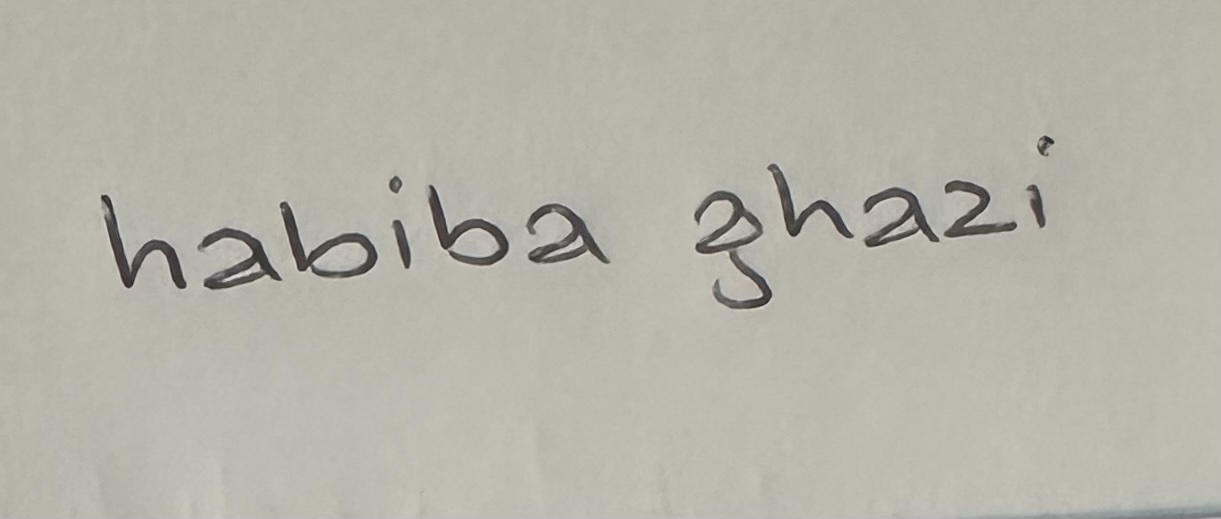 habiba ghazi